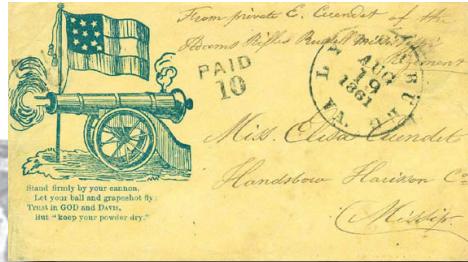 From private E. Cuendet of the
Adams Rifles Regiment
PAID
10
AUG
19
1861
VA.
Miss. Elisa Cuendet
Handsbow Harisson Co
Missip.
Stand firmly by your cannon,
Let your ball and grapeshot fly;
Trust in GOD and DAVIS,
But "keep your powder dry."